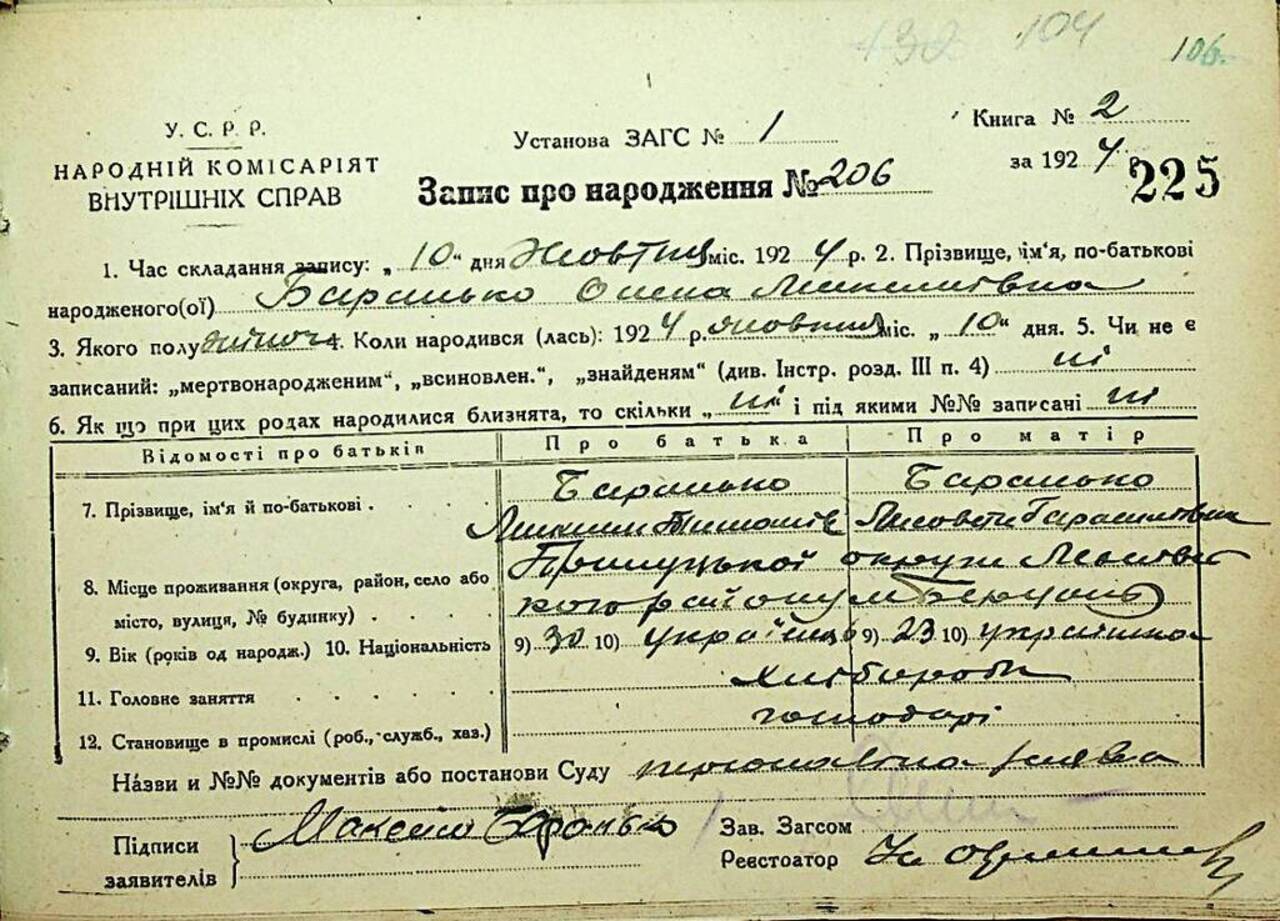 132 104 106.
У. С. Р. Р.
НАРОДНІЙ КОМІСАРІЯТ
ВНУТРІШНІХ СПРАВ
Установа ЗАГС № 1
Запис про народження № 206
Книга № 2
за 1924
225
1. Час складання запису: „10" дня Жовтня міс. 1924 р. 2. Прізвище, ім'я, по-батькові
народженого(ої) Баранько Олена Максимівна
3. Якого полу жіноч 4. Коли народився (лась): 1924 р. жовтня міс. „10" дня. 5. Чи не є
записаний: „мертвонародженим", „всиновлен.", „знайденям" (див. Інстр. розд. III п. 4) ні
6. Як що при цих родах народилися близнята, то скільки „ні" і під якими №№ записані ні
Відомості про батьків Про батька Про матір
7. Прізвище, ім'я й по-батькові Баранько Баранько
Максим Тимошів Лисовета Гарасимівна
8. Місце проживання (округа, район, село або Прилуцької округи
місто, вулиця, № будинку) району
9. Вік (років од народж.) 10. Національність 9) 30 10) українець 9) 23 10) українка
11. Головне заняття Хлібороби
12. Становище в промислі (роб., служб., хаз.) господарі
Назви и №№ документів або постанови Суду персональна заява
Підписи Максим Баранько
заявителів
Зав. Загсом
Реєстоатор